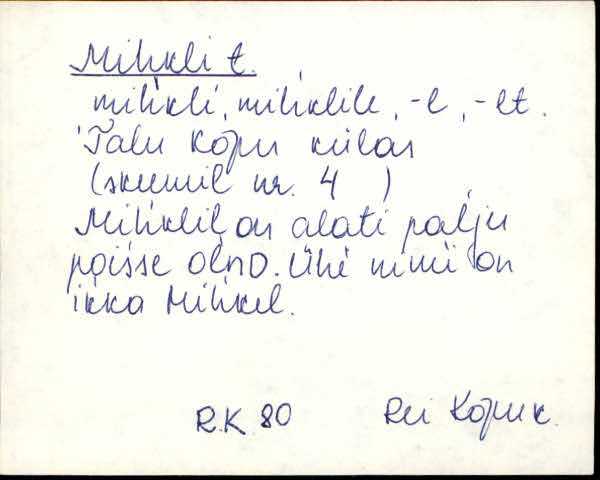 Mihkli t.
mih̀kli, mih̀klile, -l, -lt.
Talu Kõpu külas
(skeemil nr. 4 )
Mih̀klil on alati pal̀ju
poisse olnD. Ühe nimi on
ikka Mih̀kel.
R.K. 80 Rei Kõpuk.